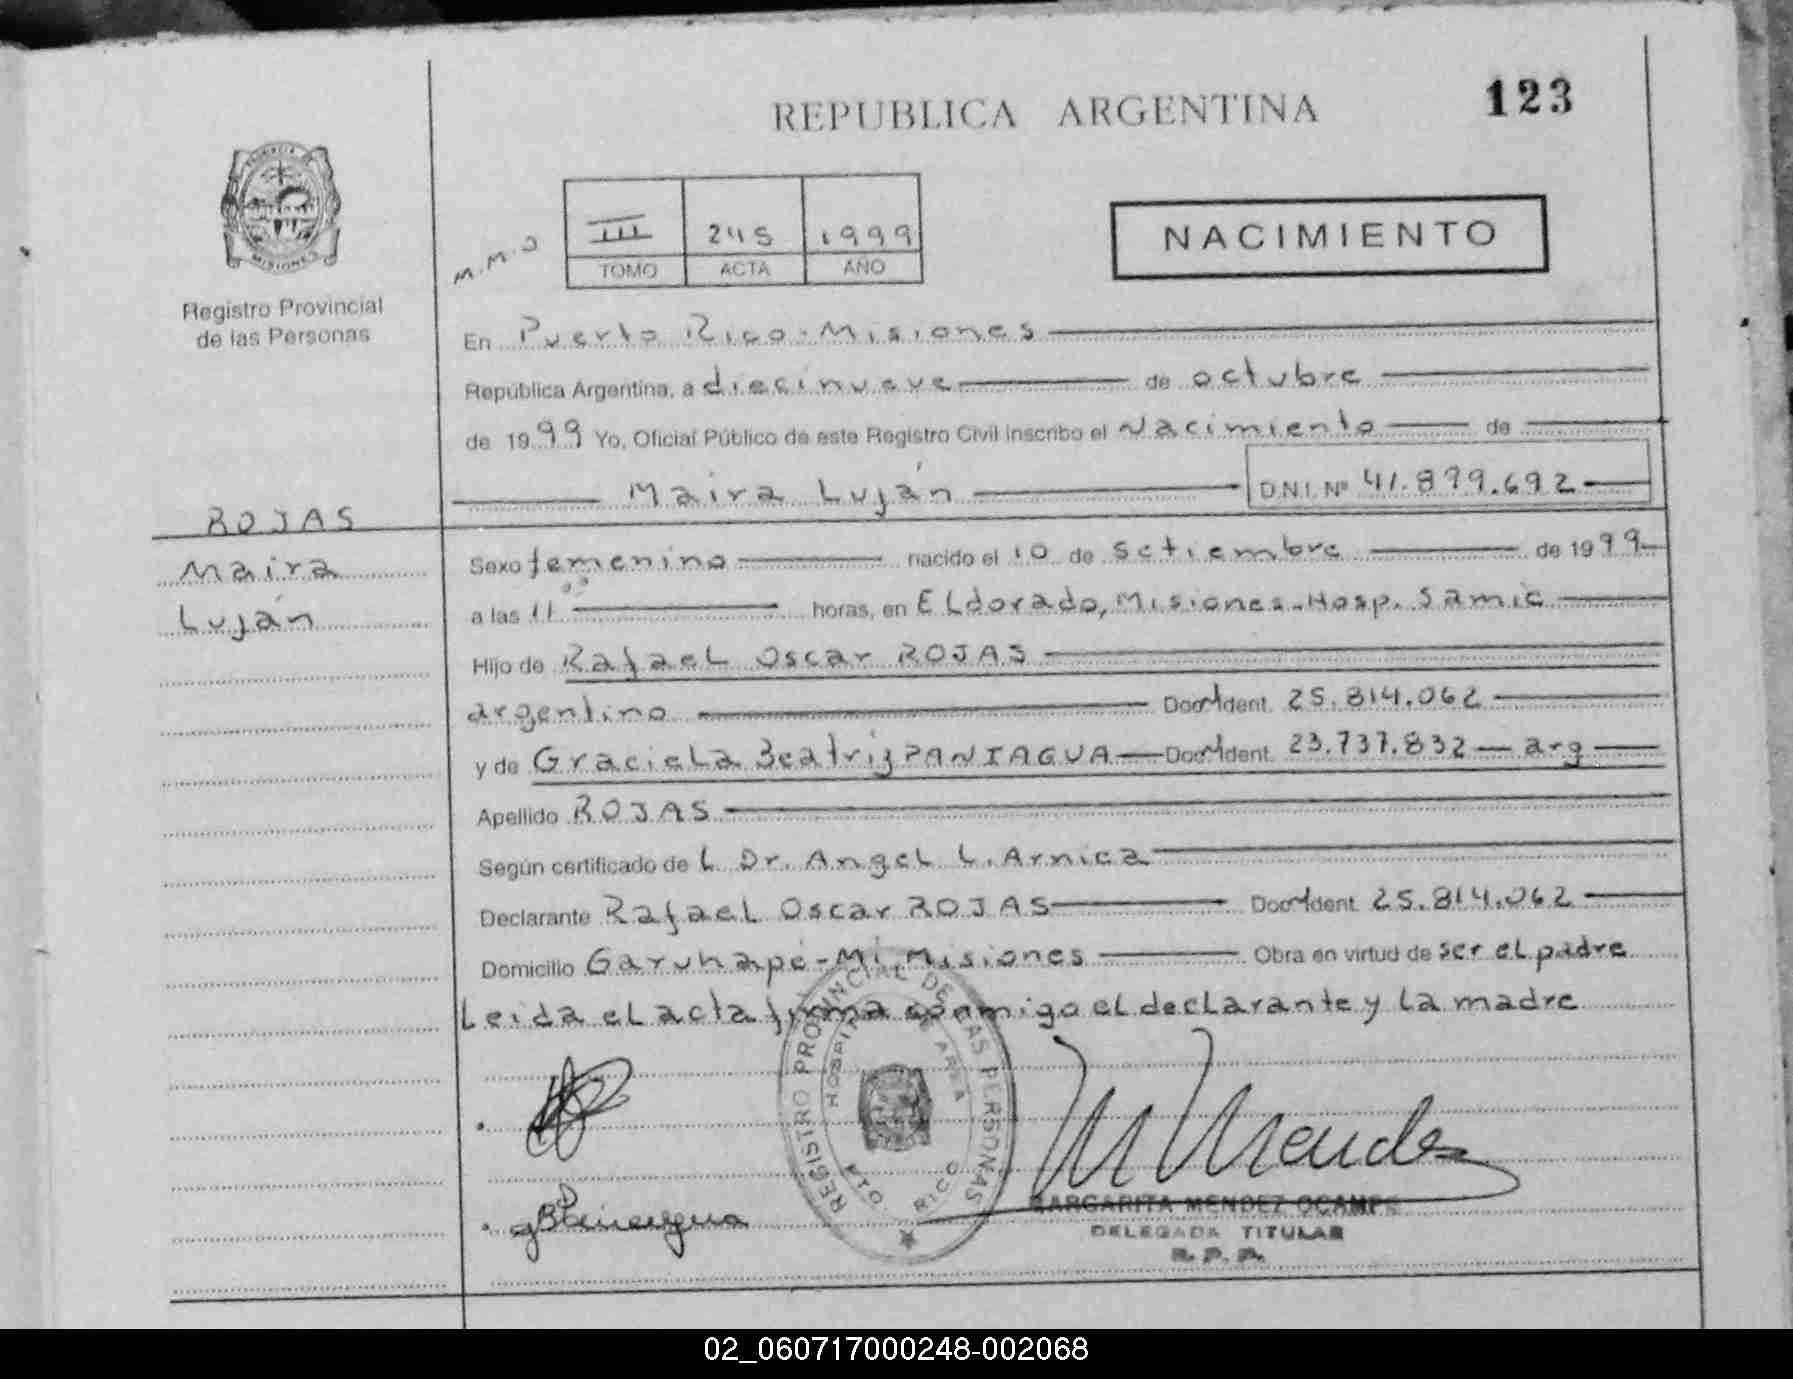 REPUBLICA ARGENTINA
123
PROVINCIA
MISIONES
Registro Provincial
de las Personas
M.M.O
III 245 1999
TOMO ACTA AÑO
NACIMIENTO
En Puerto Rico-Misiones
República Argentina, a diecinueve de octubre
de 1999 Yo, Oficial Público de este Registro Civil inscribo el Nacimiento de
Maira Luján D.N.I. Nº 41.879.692
ROJAS
Maira
Luján
Sexo femenino nacido el 10 de Setiembre de 1999
a las 11 horas, en Eldorado, Misiones-Hosp. Samic
Hijo de Rafael Oscar ROJAS
argentino Doc. Ident. 25.814.062
y de Graciela Beatriz PANIAGUA Doc. Ident. 23.737.832 arg
Apellido ROJAS
Según certificado del Dr. Angel L. Arnica
Declarante Rafael Oscar ROJAS Doc. Ident. 25.814.062
Domicilio Garuhapé-Mí Misiones Obra en virtud de ser el padre
Leida el acta firma conmigo el declarante y la madre
REGISTRO PROVINCIAL DE LAS PERSONAS
HOSPITAL AREA
PTO. RICO
M Mendez
MARGARITA MENDEZ OCAMPO
DELEGADA TITULAR
R. P. P.
02_060717000248-002068